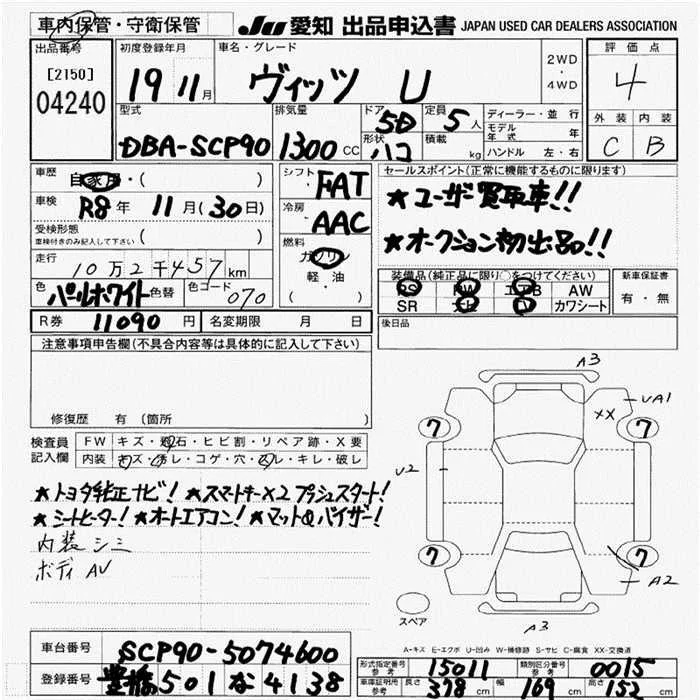 車内保管・守衛保管
JU 愛知 出品申込書 JAPAN USED CAR DEALERS ASSOCIATION
出品番号
[2150]
04240
初度登録年月
19 11月
車名・グレード
ヴィッツ U
2WD
・
4WD
評価点
4
外装 内装
C B
型式
DBA-SCP90
排気量
1300 CC
ドア
5D
形状
ハコ
定員
5人
積載
kg
ディーラー・並行
モデル年式 年
ハンドル 左・右
車歴
自家用・( )
車検
R8年 11月(30日)
受検形態
車検付きのみ記入して下さい ( )
走行
10万2千457km
色
パールホワイト 色替
色コード 070
シフト
FAT
冷房
AAC
燃料
ガソリン
軽・油
( )
セールスポイント(正常に機能するものに限ります)
★ユーザー買取車!!
★オークション初出品!!
装備品(純正品に限り○をつけてください)
PS PW エアB AW
SR ナビ TV カワシート
新車保証書
有・無
後日品
R券 11090円 名変期限 月 日
注意事項申告欄(不具合内容等は具体的に記入して下さい)
修復歴 有(箇所 )
検査員
記入欄
FW キズ・飛石・ヒビ割・リペア跡・X要
内装 キズ・汚レ・コゲ・穴・スレ・キレ・破レ
★トヨタ純正ナビ! ★スマートキー×2 プッシュスタート!
★シートヒーター! ★オートエアコン! ★マット&バイザー!
内装シミ
ボディ AU
A3
UA1
XX
7
7
U2
7
7
A2
A3
スペア
A-キズ E-エクボ U-凹み W-補修跡 S-サビ C-腐食 XX-交換済
車台番号 SCP90-5074600
登録番号 豊橋 501 な 4138
形式指定番号
参考
15011
類別区分番号
参考
0015
車庫証明用
参考
長さ 378cm 幅 169cm 高さ 152cm